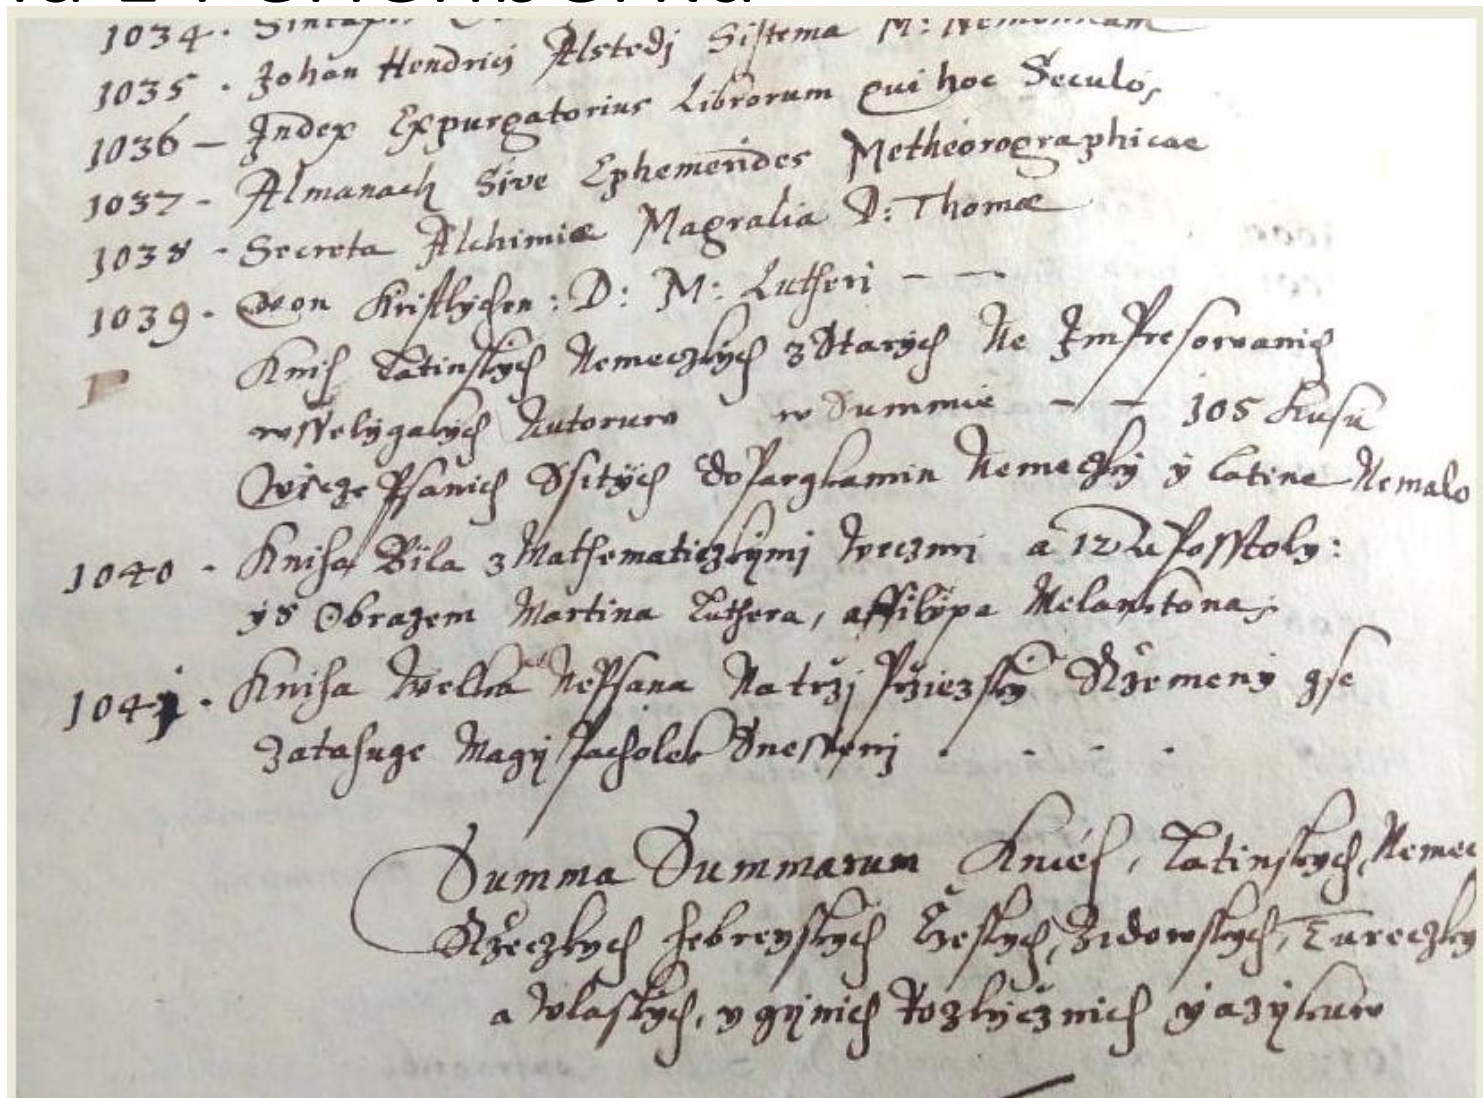 1034. Sintaxis
1035. Johan Hendricj Alstedj Sistema M: Nemonicum
1036 – Index Expurgatorius Librorum qui hoc Seculo,
1037 - Almanach Sive Ephemerides Metheorographicae
1038 - Secreta Alchimiæ Magralia D: Thomæ
1039. Von Kristlychen: D: M: Lutheri – –
Knih Latinskych Nemeczkych z Starych Ne ImPresorvanich
wsselygakych Autoruw w Summie – – 105 Kusu
Vicze Psanich Ssitych do Pargkamin Nemeczky y Latine Nemalo
1040 - Kniha Bila z Mathematiczkymj Weczmi a 12 aPosstoly:
ys Obrazem Martina Luthera, a ffilypa Melanktona;
1041. Kniha Welka NePsana Na trzj Prziezsky Rzemeny gse
zatahuge Magy Pacholek Dnesspnj . . . .
Summa Summarum Knieh, Latinskych, Nemec
Rzeczkych hebreyskych Českych, Zidowskych, Tureczky
a Wlaskych, y gynich Rozlycznich yazykuw